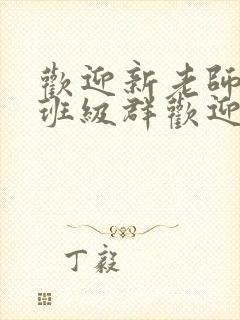 歡迎新老師
班級群歡迎
丁毅